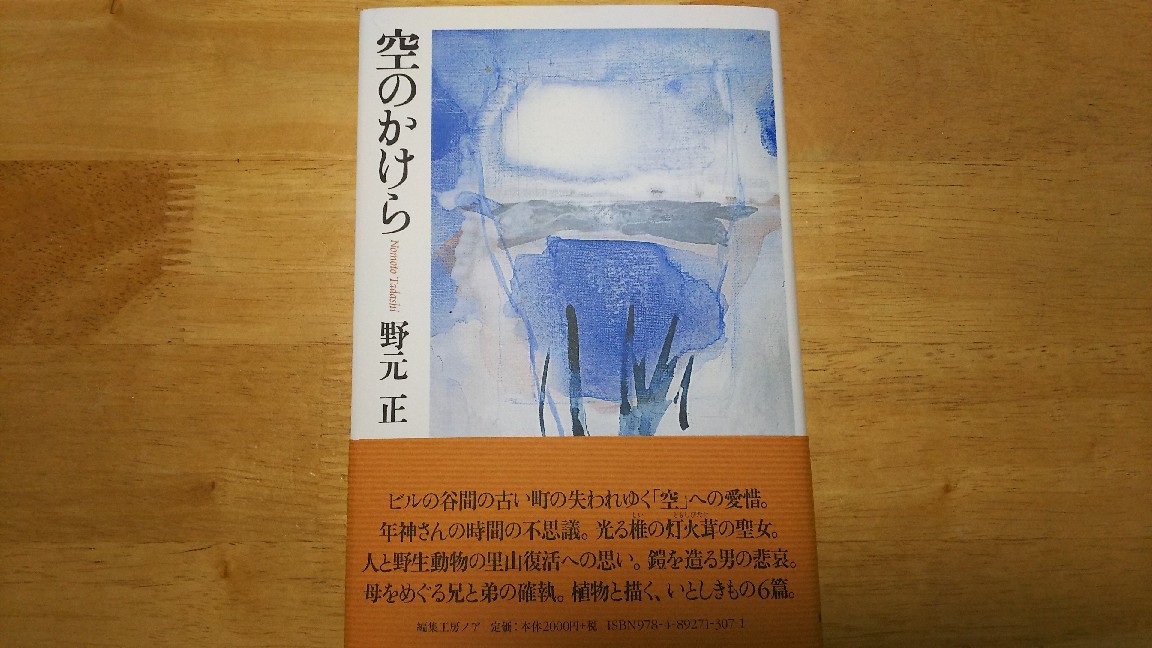 空のかけら
Nomoto Tadashi
野元 正
ビルの谷間の古い町の失われゆく「空」への愛惜。
年神さんの時間の不思議。光る椎の灯火茸の聖女。
人と野生動物の里山復活への思い。鎧を造る男の悲哀。
母をめぐる兄と弟の確執。植物と描く、いとしきもの6篇。
編集工房ノア 定価：本体2000円+税 ISBN978-4-89271-307-1